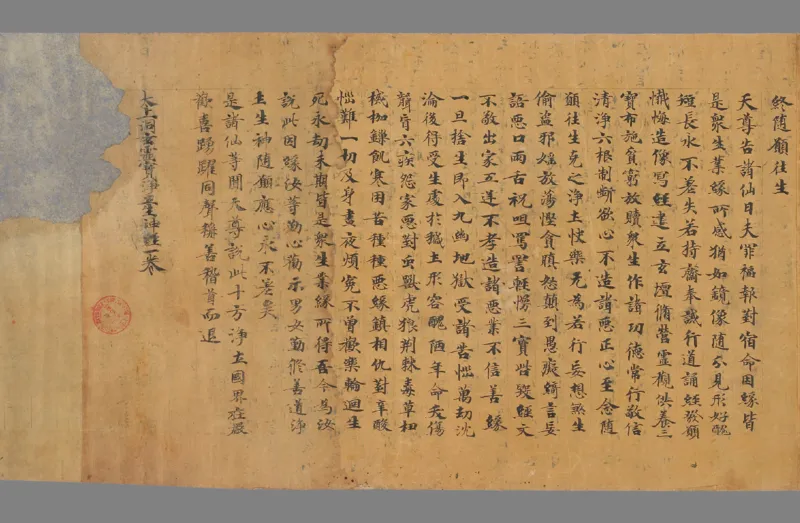 終随願往生
天尊告諸仙曰夫罪福報對宿命因緣皆
是衆生業緣所感猶如鏡像随其見形好醜
短長永不差失若持齋奉誡行道誦經發願
懺悔造像寫經建立玄壇脩營靈觀供養三
寶布施貧窮放贖衆生作諸功德常行敬信
清淨六根制斷欲心不造諸惡正心至念随
願往生免之淨土快樂无為若行妄想煞生
偷盜邪婬放蕩慳貪瞋恚顛到愚癡綺言妄
語惡口兩舌祝咀罵詈輕愣三寶呰毀經文
不敬出家五逆不孝造諸惡業不信善緣
一旦捨生即入九幽地獄受諸苦惱萬劫沈
淪後得受生處於穢土形容醜陋年命夭傷
聾盲六疾怨家惡對虫獸虎狼荆棘毒草杻
械枷鏁飢寒困苦種種惡緣鎮相仇對辛酸
惱難一切及身晝夜煩寃不曾歡樂輪迴生
死永劫未期皆是衆生業緣所得吾今為汝
說此因緣汝等勤心勸示男女勤脩善道淨
土生神随願應心永不差矣
是諸仙等聞天尊說此十方淨土國界莊嚴
歡喜踴躍同聲稱善稽首而退
太上洞玄靈寶淨土生神經一卷